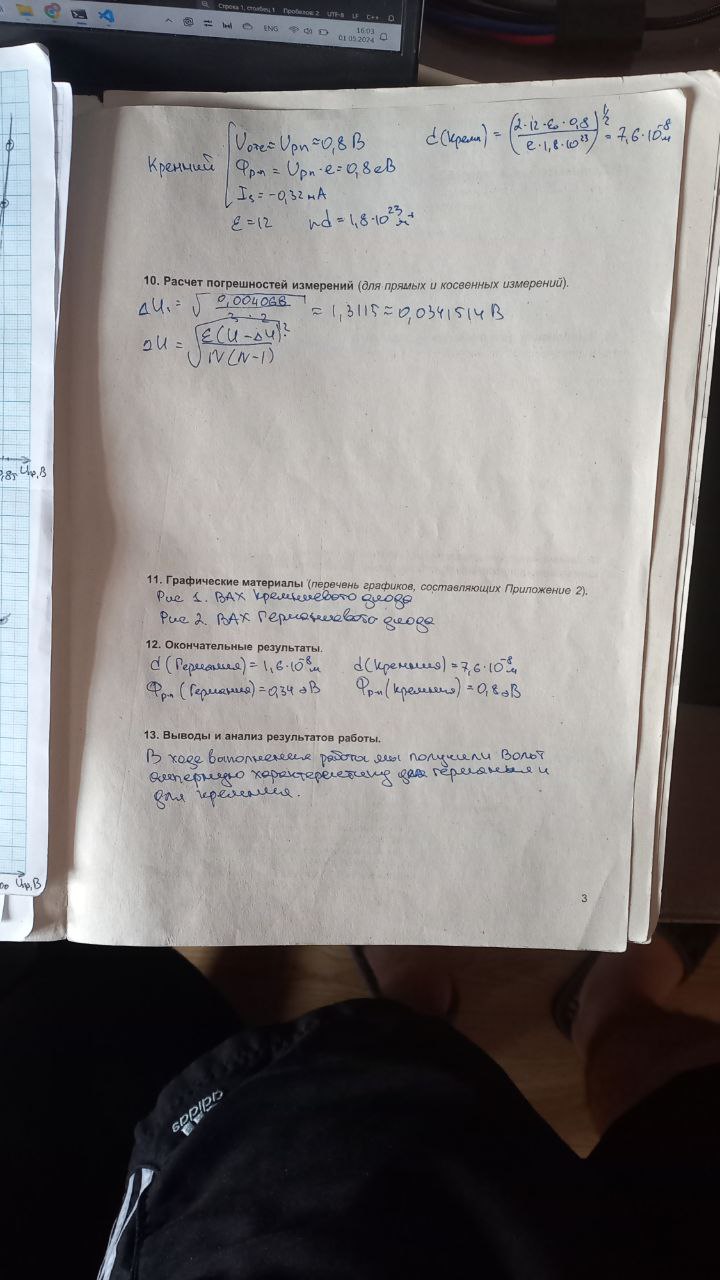 Строка 1, столбец 1 Пробелов: 2 UTF-8 LF C++
ENG 16:03
01.05.2024
Кремний
Uотс = Uрп ≈ 0,8 В
Φрп = Uрп · e = 0,8 эВ
Is = -0,32 мА
ε = 12 nd = 1,8 · 10²³
d(кремн) = (2·12·ε₀·0,8 / e·1,8·10²³)^1/2 = 7,6·10⁻⁸ м
10. Расчет погрешностей измерений (для прямых и косвенных измерений).
ΔU₁ = √(0,004068 / 3·2) = 1,3115 ≈ 0,0341514 В
ΔU = √(Σ(U - ΔU)² / N(N-1))
Uпр, В
11. Графические материалы (перечень графиков, составляющих Приложение 2).
Рис 1. ВАХ Кремниевого диода
Рис 2. ВАХ Германиевого диода
12. Окончательные результаты.
d(Германия) = 1,6·10⁻⁸ м d(Кремния) = 7,6·10⁻⁸ м
Φрп (Германия) = 0,34 эВ Φрп (кремния) = 0,8 эВ
13. Выводы и анализ результатов работы.
В ходе выполнения работы мы получили Вольт
амперную характеристику для германия и
для кремния.
Uпр, В
3
adidas